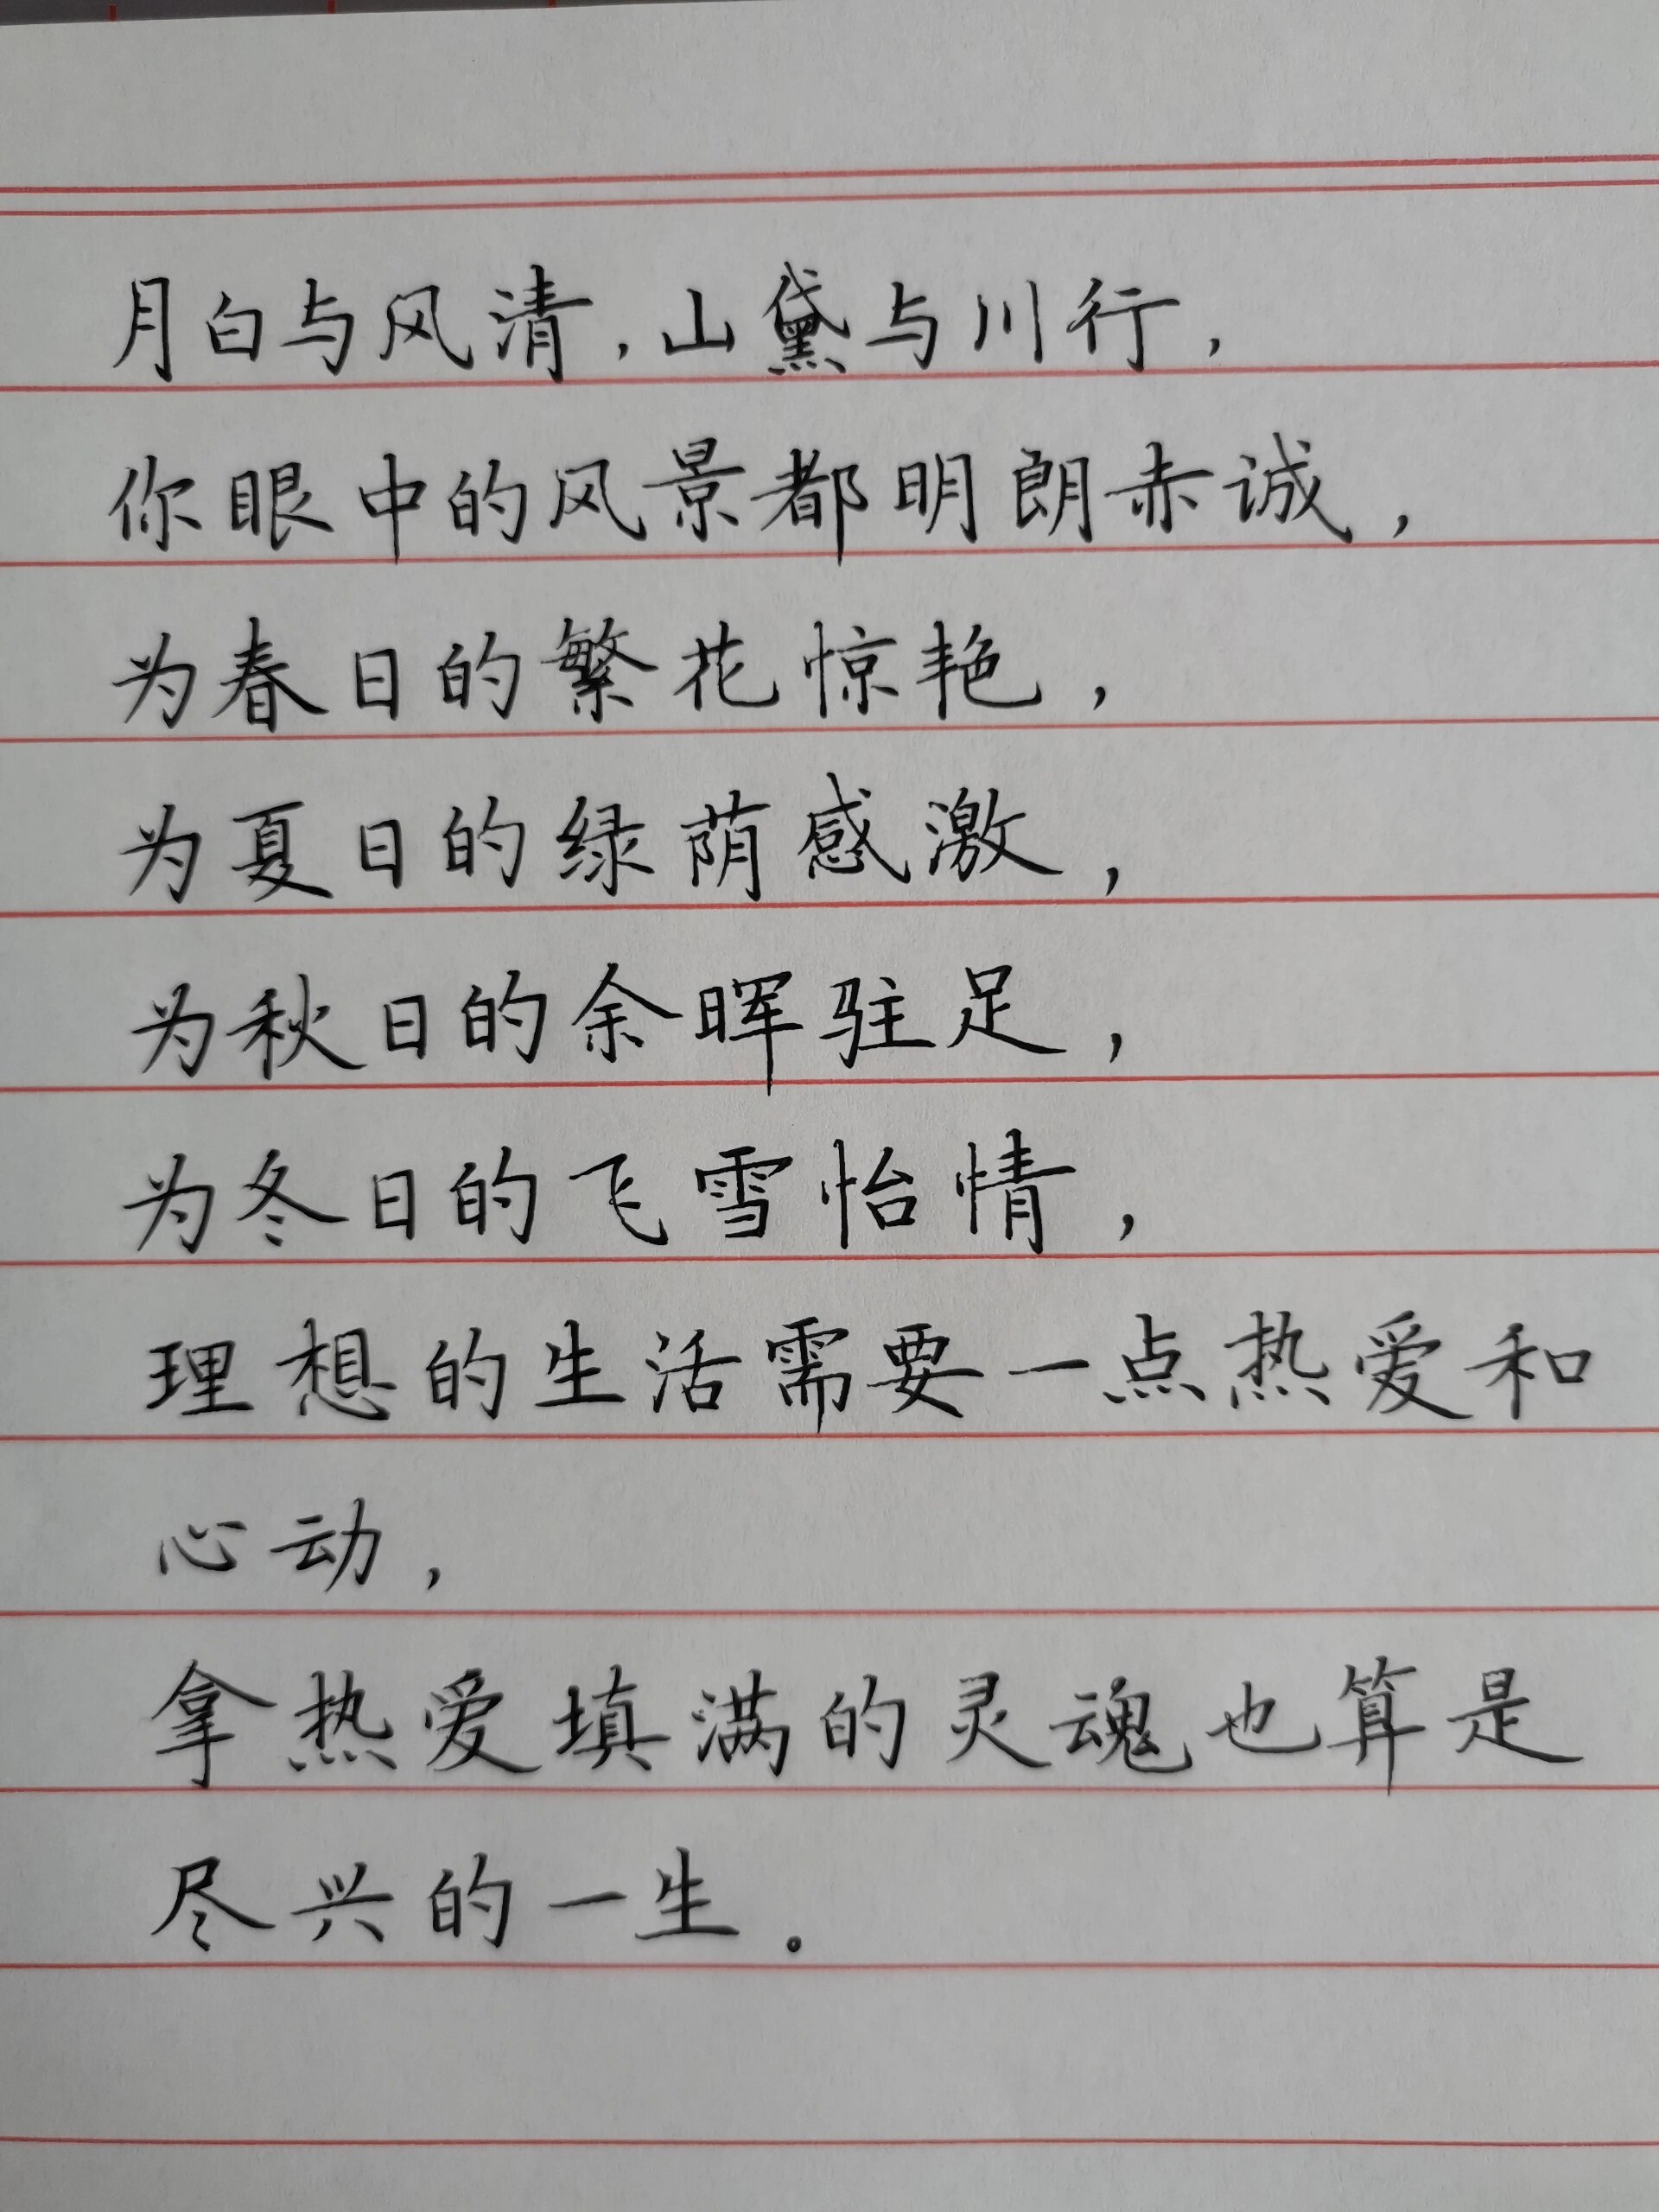 月白与风清,山黛与川行,
你眼中的风景都明朗赤诚,
为春日的繁花惊艳,
为夏日的绿荫感激,
为秋日的余晖驻足,
为冬日的飞雪怡情,
理想的生活需要一点热爱和
心动,
拿热爱填满的灵魂也算是
尽兴的一生。